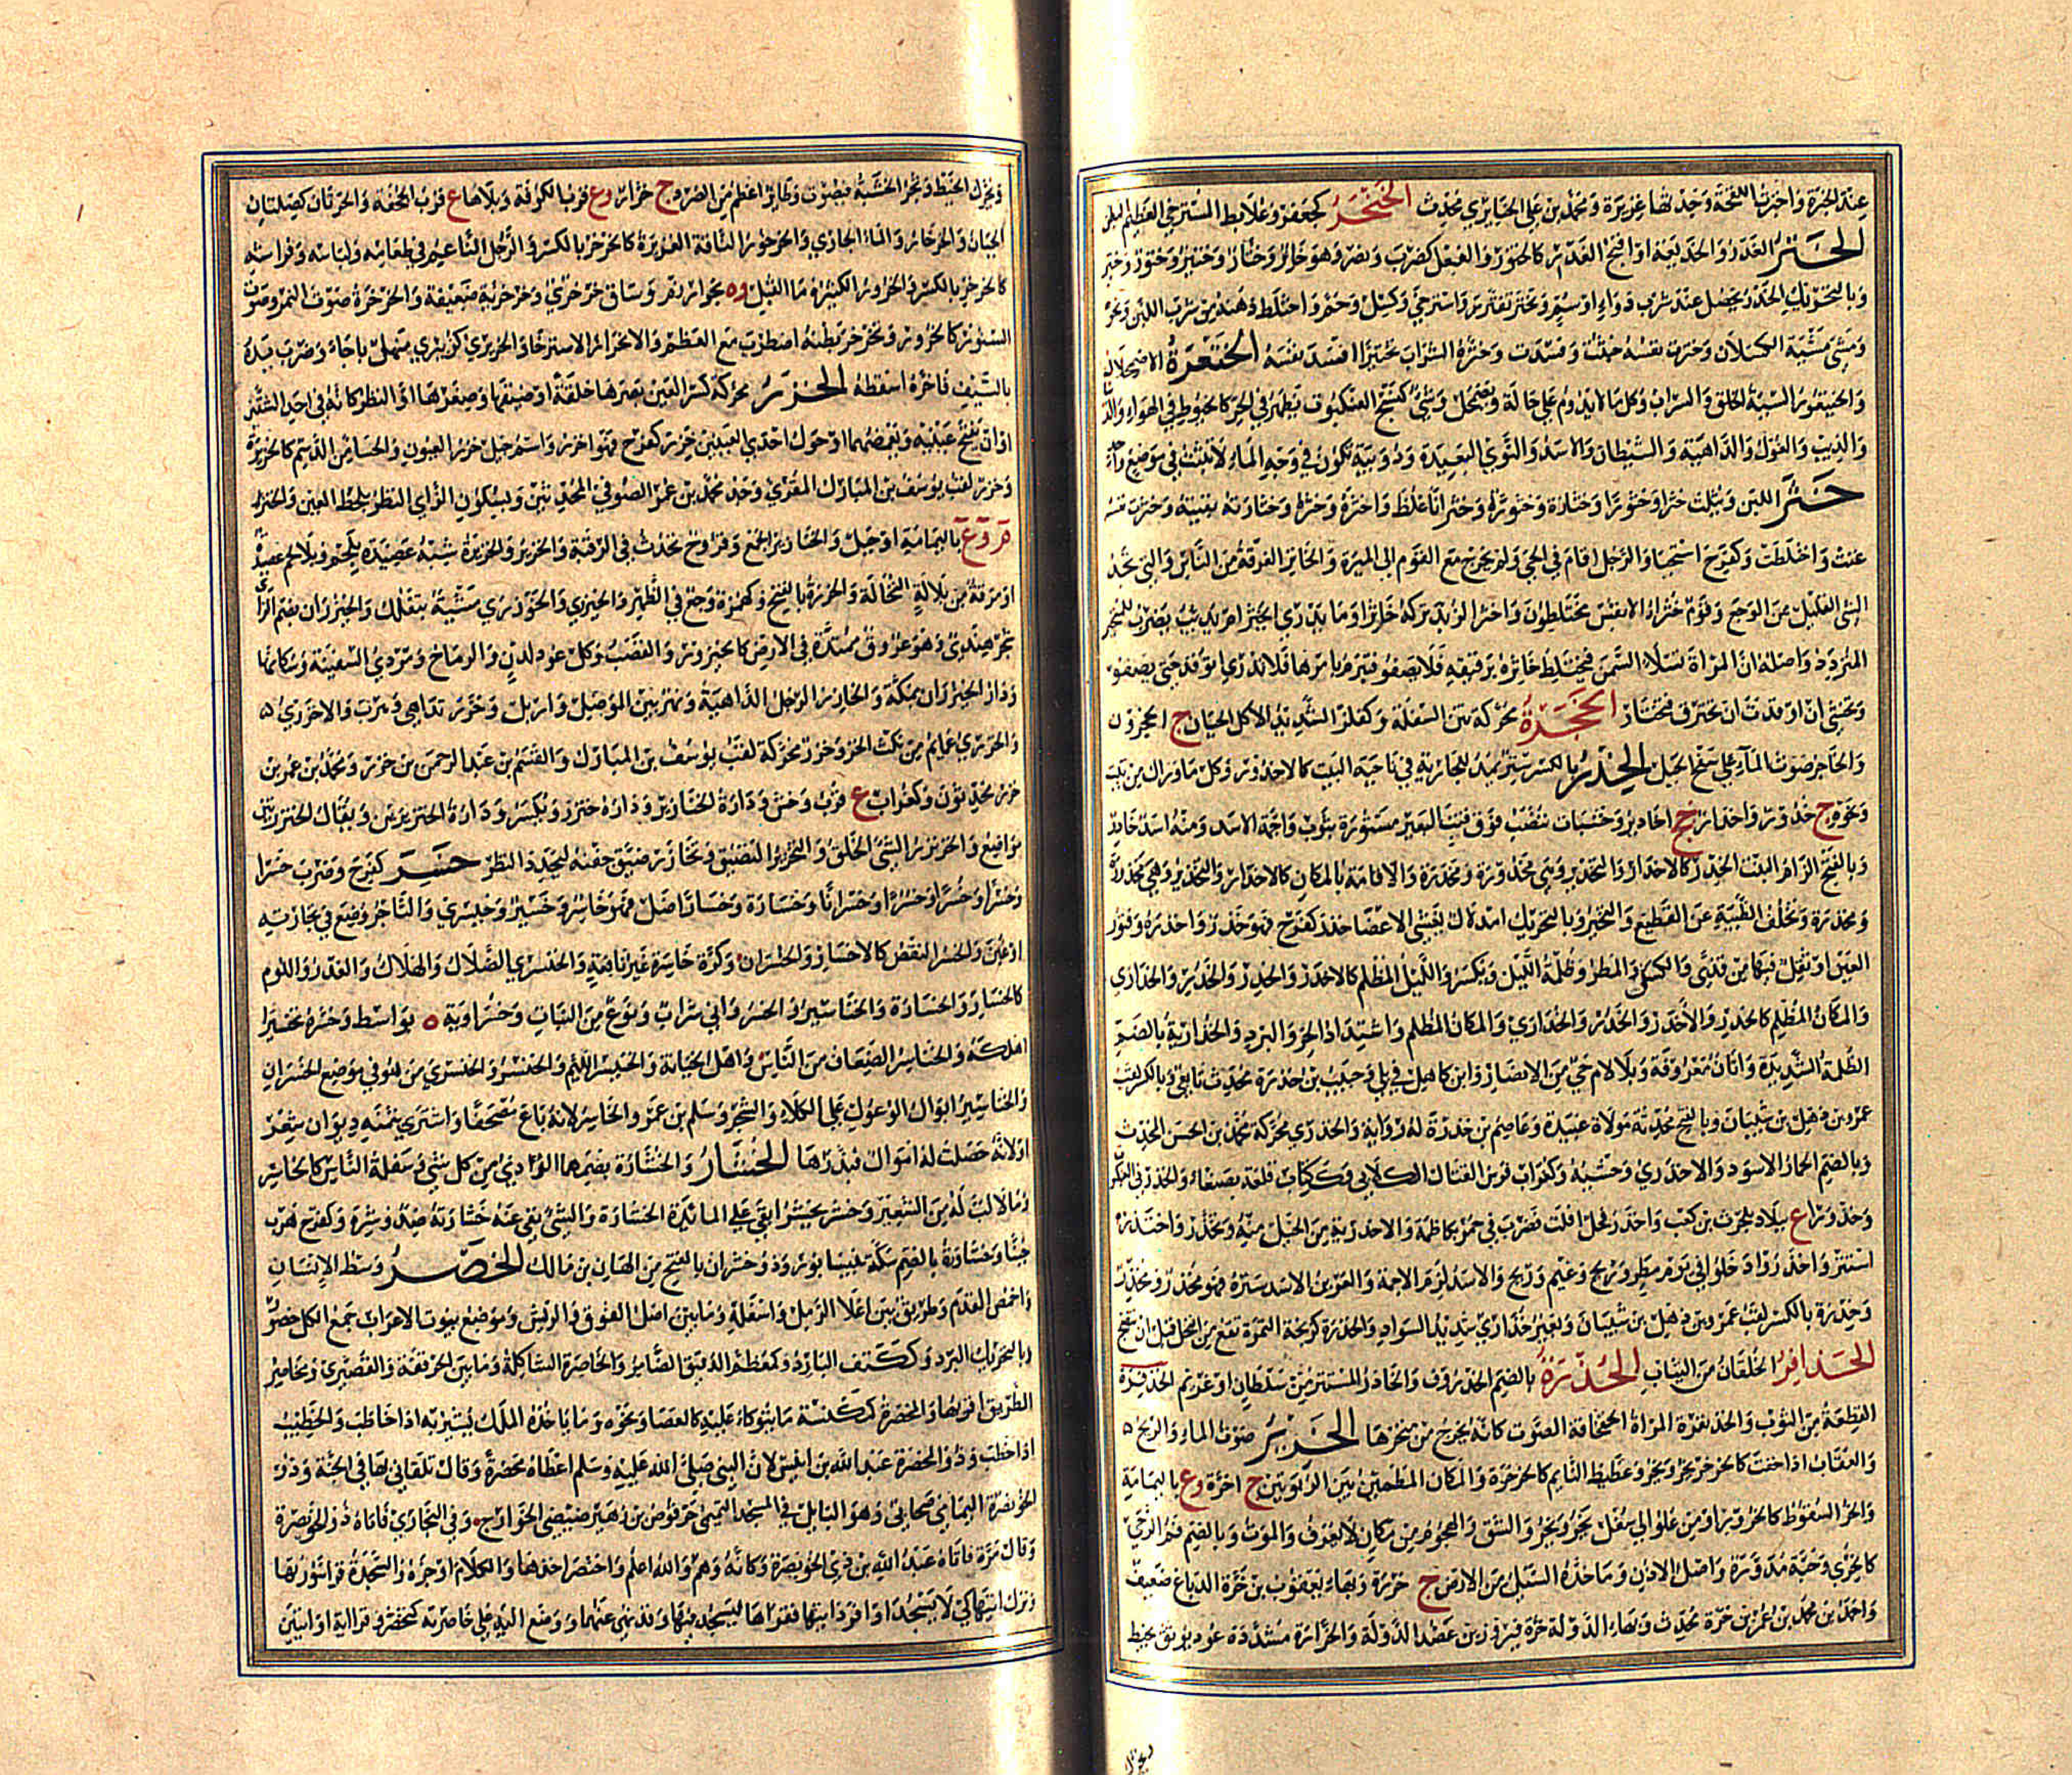 عند الجزرة واخبرت اللقحة وجدتها غزيرة ومحمد بن علي الخبايري محدث الخنجر كجعفر وعلابط المسترخي العظيم البطن
الختر الغدر والخديعة او اقبح الغدر كالختور والفعل كضرب ونصر وهو خاتر وختار وختير وختور وختير
وبالتحريك الخدر يحصل عند شرب دواء او سم وتختر تفتر واسترخي وكسل وحم واختلط ذهنه من شرب اللبن ونحوه
ومشى مشية الكسلان وخترت نفسه خبثت وفسدت وختره الشراب تختيرا افسد نفسه الختعرة الاضمحلال
والخيتعور السيئة الخلق والسراب وكل ما لا يدوم علي حالة ويضمحل وشئ كنسج العنكبوت يظهر في الحر كالخيوط في الهواء والدنيا
والذيب والغول والداهية والشيطان والاسد والنوي البعيدة ودويبة تكون في وجه الماء لا تلبث في موضع واحد
خثر اللبن ويثلث خثرا وخثورا وخثارة وخثورة وخثرانا غلظ واخثره وخثره وخثارته بقيته وخثرت نفسه
غثت واختلطت وكفرح استحيا والرجل اقام في الحي ولم يخرج مع القوم الى الميرة والخاثر الفرقة من الناس والتي تجد
الشئ القليل من الوجع وقوم خثراء الانفس مختلطون واخثر الزبد تركه خاثرا وما يدري ايخثر ام يذيب يضرب للمتحير
المتردد واصله ان المراة تسلا السمن فيختلط خاثره برقيقه فلا يصفو فتبرم بامرها فلا تدري اتوقد حتي يصفو
وتخشى ان اوقدت ان يحترق فتحتار الخجرة محركة نتن السفلة وكفلز الشديد الاكل الجبان ج الخجرون
والخاجر صوت الماء علي سفح الجبل الخدر بالكسر ستر يمد للجارية في ناحية البيت كالاخدور وكل ما واراك من بيت
ونحوه ج خدور واخدار جج اخادير وخشبات تنصب فوق قتب البعير مستورة بثوب واجمة الاسد ومنه اسد خادر
وبالفتح الزام البنت الخدر كالاخدار والتخدير وهي مخدورة ومخدرة والاقامة بالمكان كالاخدار والتخدير وهي مخدرة
ومخدرة وتخلف الظبية عن القطيع والتحير وبالتحريك امذلال يغشى الاعضا خدر كفرح فهو خدر واخدره وفتور
العين او ثقل فيها من قذى والكسل والمطر وظلمة الليل ويكسر والليل المظلم كالاخدر والخدر والخدر والخداري
والمكان المظلم كالخدر والاخدر والخدر والخداري والمكان المظلم واشتداد الحر والبرد والخدارية بالضم
الظلمة الشديدة واتان معروفة وبلا لام حي من الانصار وابن كاهل في بلي وحبيب بن خدرة محدث تابعي وبالكسر لقب
عمرو بن ذهل بن شيبان وبالفتح محدثة مولاة عبيدة وعاصم بن خدرة له رواية والخدري محركة محمد بن الحسن المحدث
وبالضم الحمار الاسود والاخدري وحشيه وكغراب فرس القتال الكلابي وككتاب قلعة بصنعاء والخدرني العنكبوت
وخدوراء ع ببلاد بلحرث بن كعب واخدر فحل افلت فضرب في حمر بكاظمة والاخدرية من الخيل منه وتخدر واختدر
استتر واخدروا دخلوا في يوم مطر وريح وغيم وريح والاسد لزم الاجمة والعرين الاسد ستره فهو مخدر ومخدر
وخدرة بالكسر لقب عمرو بن ذهل بن شيبان وبعير خداري شديد السواد والخدرة كزنخة التمرة تقع من النخل قبل ان تنضج
الخدافر الخلقان من الثياب الخذرة بالضم الخذروف والخاذر المستتر من سلطان او غريم الخذفرة
القطعة من الثوب والخذنفرة المراة الخفخافة الصوت كانه يخرج من منخرها الخرير صوت الماء والريح
والعقاب اذا حفت كالخرخر يخر ويخر وغطيط النايم كالخرخرة والمكان المطمئن بين الربوتين ج اخرة وع باليمامة
والخر السقوط كالخرور او من علو الي سفل يخر ويخر والشق والهجوم من مكان لا يعرف والموت وبالضم فم الرحى
كالخري وحبة مدورة واصل الاذن وما خده السيل من الارض ج خررة وبهاء يعقوب بن خرة الدباغ ضعيف
واحمد بن محمد بن عمر بن خرة محدث وبهاء الدولة خرة فيروز بن عضد الدولة والخرارة مشددة عود يوثق بخيط
ويحرك
ويحرك الخيط وتجر الخشبة فيصوت وطاير اعظم من الصرد ج خرار وع قرب الكوفة وبلاهاء ع قرب الجحفة والخرتان كصليتان
الجبان والخرخار والماء الجاري والخرخور الناقة الغزيرة كالخرخر بالكسر والرجل الناعم في طعامه ولباسه وفراشه
كالخرخر بالكسر والخرور الكثيرة ما القبل وه بخوارزم وساق خرخري وخرخرية ضعيفة والخرخرة صوت النمر وصوت
السنور كالخرور وتخرخر بطنه اضطرب مع العظم والانخرار الاسترخا والخريري كزبيري منهل باجاء وضرب يده
بالسيف فاخره اسقطه الخزر محركة كسر العين بصرها خلقة او ضيقها وصغرها او النظر كانه في احد الشقين
او ان يفتح عينيه ويغمضهما او حول احدي العينين خزر كفرح فهو اخزر واسم جيل خزر العيون والحسا من الدسم كالخزيرة
وخزر لقب يوسف بن المبارك المقري وجد محمد بن عمر الصوفي المحدثين وبسكون الزاي النظر بلحظ العين والخنزير
م وع باليمامة او جبل والخنازير الجمع وقروح تحدث في الرقبة والخزير والخزيرة شبه عصيدة بلحم وبلا لحم عصيدة
او مرقة من بلالة النخالة والخزرة بالفتح وكهمزة وجع في الظهر والخيزري والخوزري مشية بتفكك والخيزران بضم الزاي
شجر هندي وهو عروق ممتدة في الارض كالخيزور والقصب وكل عود لدن والرماح ومردي السفينة وسكانها
ودار الخيزران بمكة والخازر الرجل الداهية ونهر بين الموصل واربل وخزر تداهى وهرب والاخزري
والخزري عمايم من نكث الخز وخزر محركة لقب يوسف بن المبارك والقسم بن عبد الرحمن بن خزر ومحمد بن عمر بن
خزر محدثون وكغراب ع قرب وخش ودارة الخنازير ويكسر ودارة خنزر ودارة الخنزيرين ويقال الخنزرتين
مواضع والخزنزر السئ الخلق والتخزير التضييق وتخازر ضيق جفنه ليحدد النظر خسر كفرح وضرب خسرا
وخسرا وخسرا وخسرا وخسرانا وخسارة وخسارا ضل فهو خاسر وخسير وخيسري والتاجر وضع في تجارته
او غبن والخسر النقص كالاخسار والخسران وكرة خاسرة غير نافعة والخنسري الضلال والهلاك والغدر واللوم
كالخسار والخسارة والخناسير والخسرواني شراب ونوع من الثياب وخسراوية ه بواسط وخسره تخسيرا
اهلكه والخناسر الضعاف من الناس واهل الخيانة والخنيسر اللئيم والخنسر والخنسري من هو في موضع الخسران
والخناسير ابوال الوعول علي الكلاء والشجر وسلم بن عمرو الخاسر لانه باع مصحفا واشترى بثمنه ديوان شعر
او لانه حصلت له اموال فبذرها الخشار والخشارة بضمهما الردي من كل شئ وسفلة الناس كالخاشر
وما لا لب له من الشعير وخشر يخشر ابقي علي المائدة الخشارة والشئ نفي عنه خشارته ضد وشره وكفرح هرب
جبنا وخشاورة بالضم سكة بنيسابور وذو خشران بالفتح من الهان بن مالك الخصر وسط الانسان
واخمص القدم وطريق بين اعلا الرمل واسفله وما بين اصل الفوق والريش وموضع بيوت الاعراب جمع الكل خصور
وبالتحريك البرد وككتف البارد وكمعظم الدقيق الضامر والخاصرة الشاكلة وما بين الحرقفة والقصيرى ومخاصر
الطريق اقربها والمخصرة كمكنسة ما يتوكا عليه كالعصا ونحوه وما ياخذه الملك يشير به اذا خاطب والخطيب
اذا خطب وذو المخصرة عبد الله بن انيس لان النبي صلى الله عليه وسلم اعطاه مخصرة وقال تلقاني بها في الجنة وذو
الخويصرة اليماني صحابي وهو البايل في المسجد التميمي حرقوص بن زهير ضئضئ الخوارج وفي البخاري فاتاه ذو الخويصرة
وقال مرة فاتاه عبد الله بن ذي الخويصرة وكانه وهم والله اعلم واختصر اخذها والكلام اوجزه والسجدة قرا سورتها
وترك ايتها كي لا يسجد او افرد ايتها فقراها ليسجد فيها وقد نهي عنهما ووضع اليد علي خاصرته كتخصر وقرا اية او ايتين